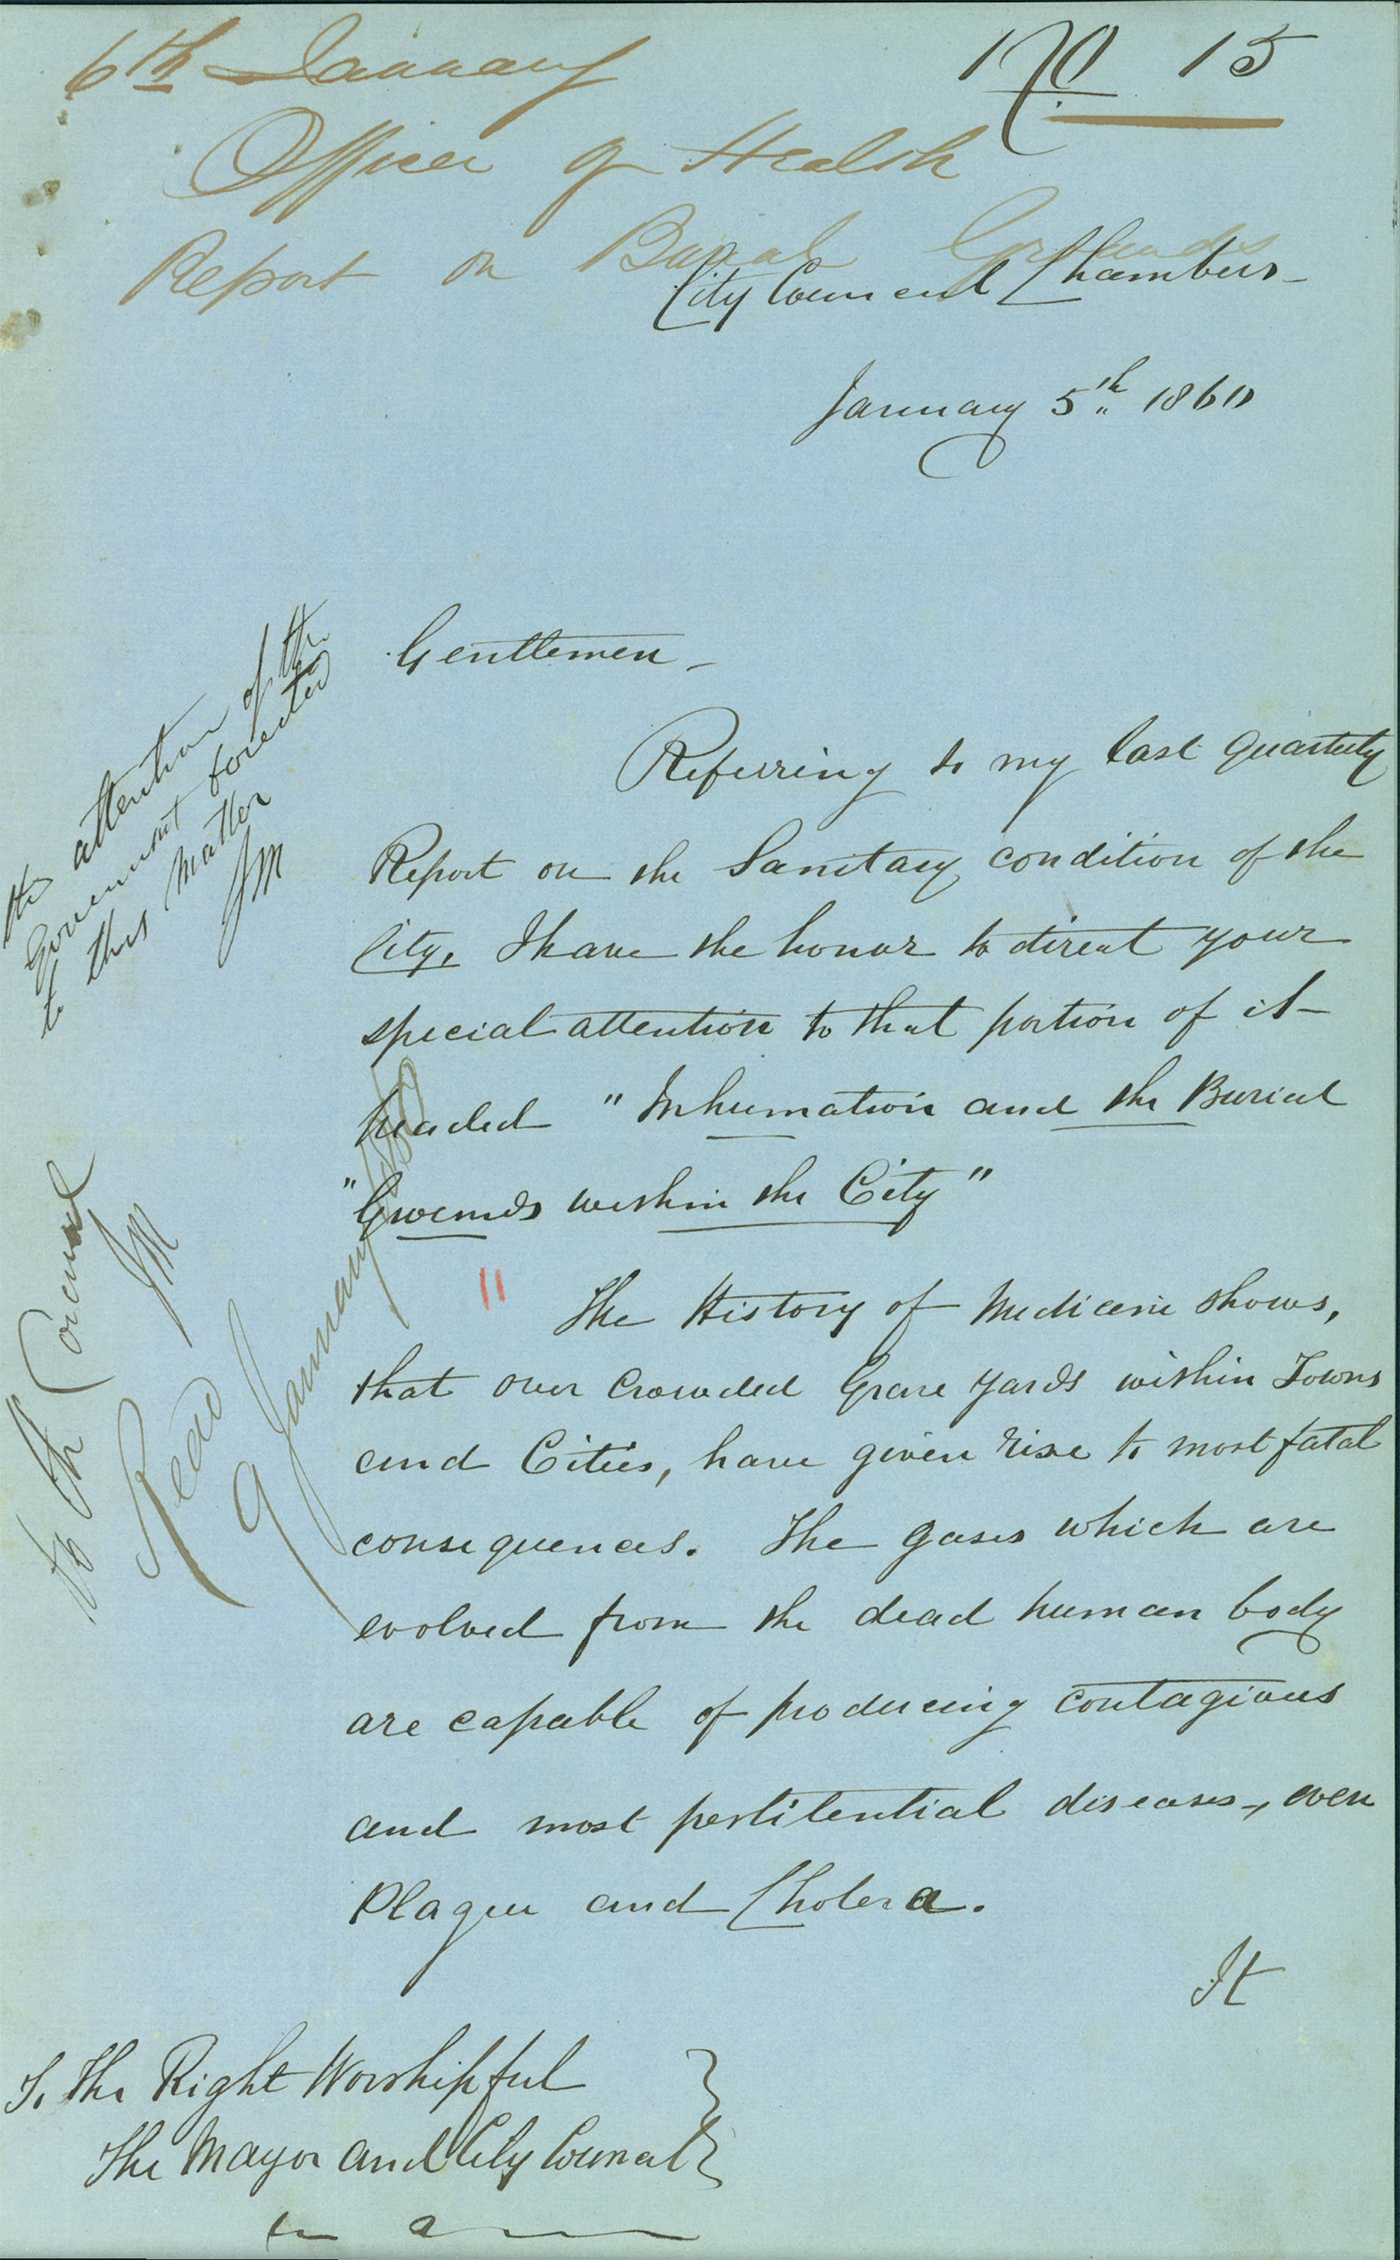 6th January
15
Officer of Health
Report on Burial Grounds
City Council Chambers
January 5th 1860
Gentlemen
Referring to my last Quarterly
Report on the Sanitary condition of the
City, I have the honor to direct your
special attention to that portion of it
headed "Inhumation and the Burial
"Grounds within the City"
The History of Medicine shows,
that over crowded Grave yards within Towns
and Cities, have given rise to most fatal
consequences. The gases which are
evolved from the dead human body
are capable of producing contagious
and most pestilential diseases, even
Plague and Cholera.
It
To The Right Worshipful
The Mayor and City Council
the attention of the
Government directed
to this matter
JM
to the Council
JM
Read
9 January 1860